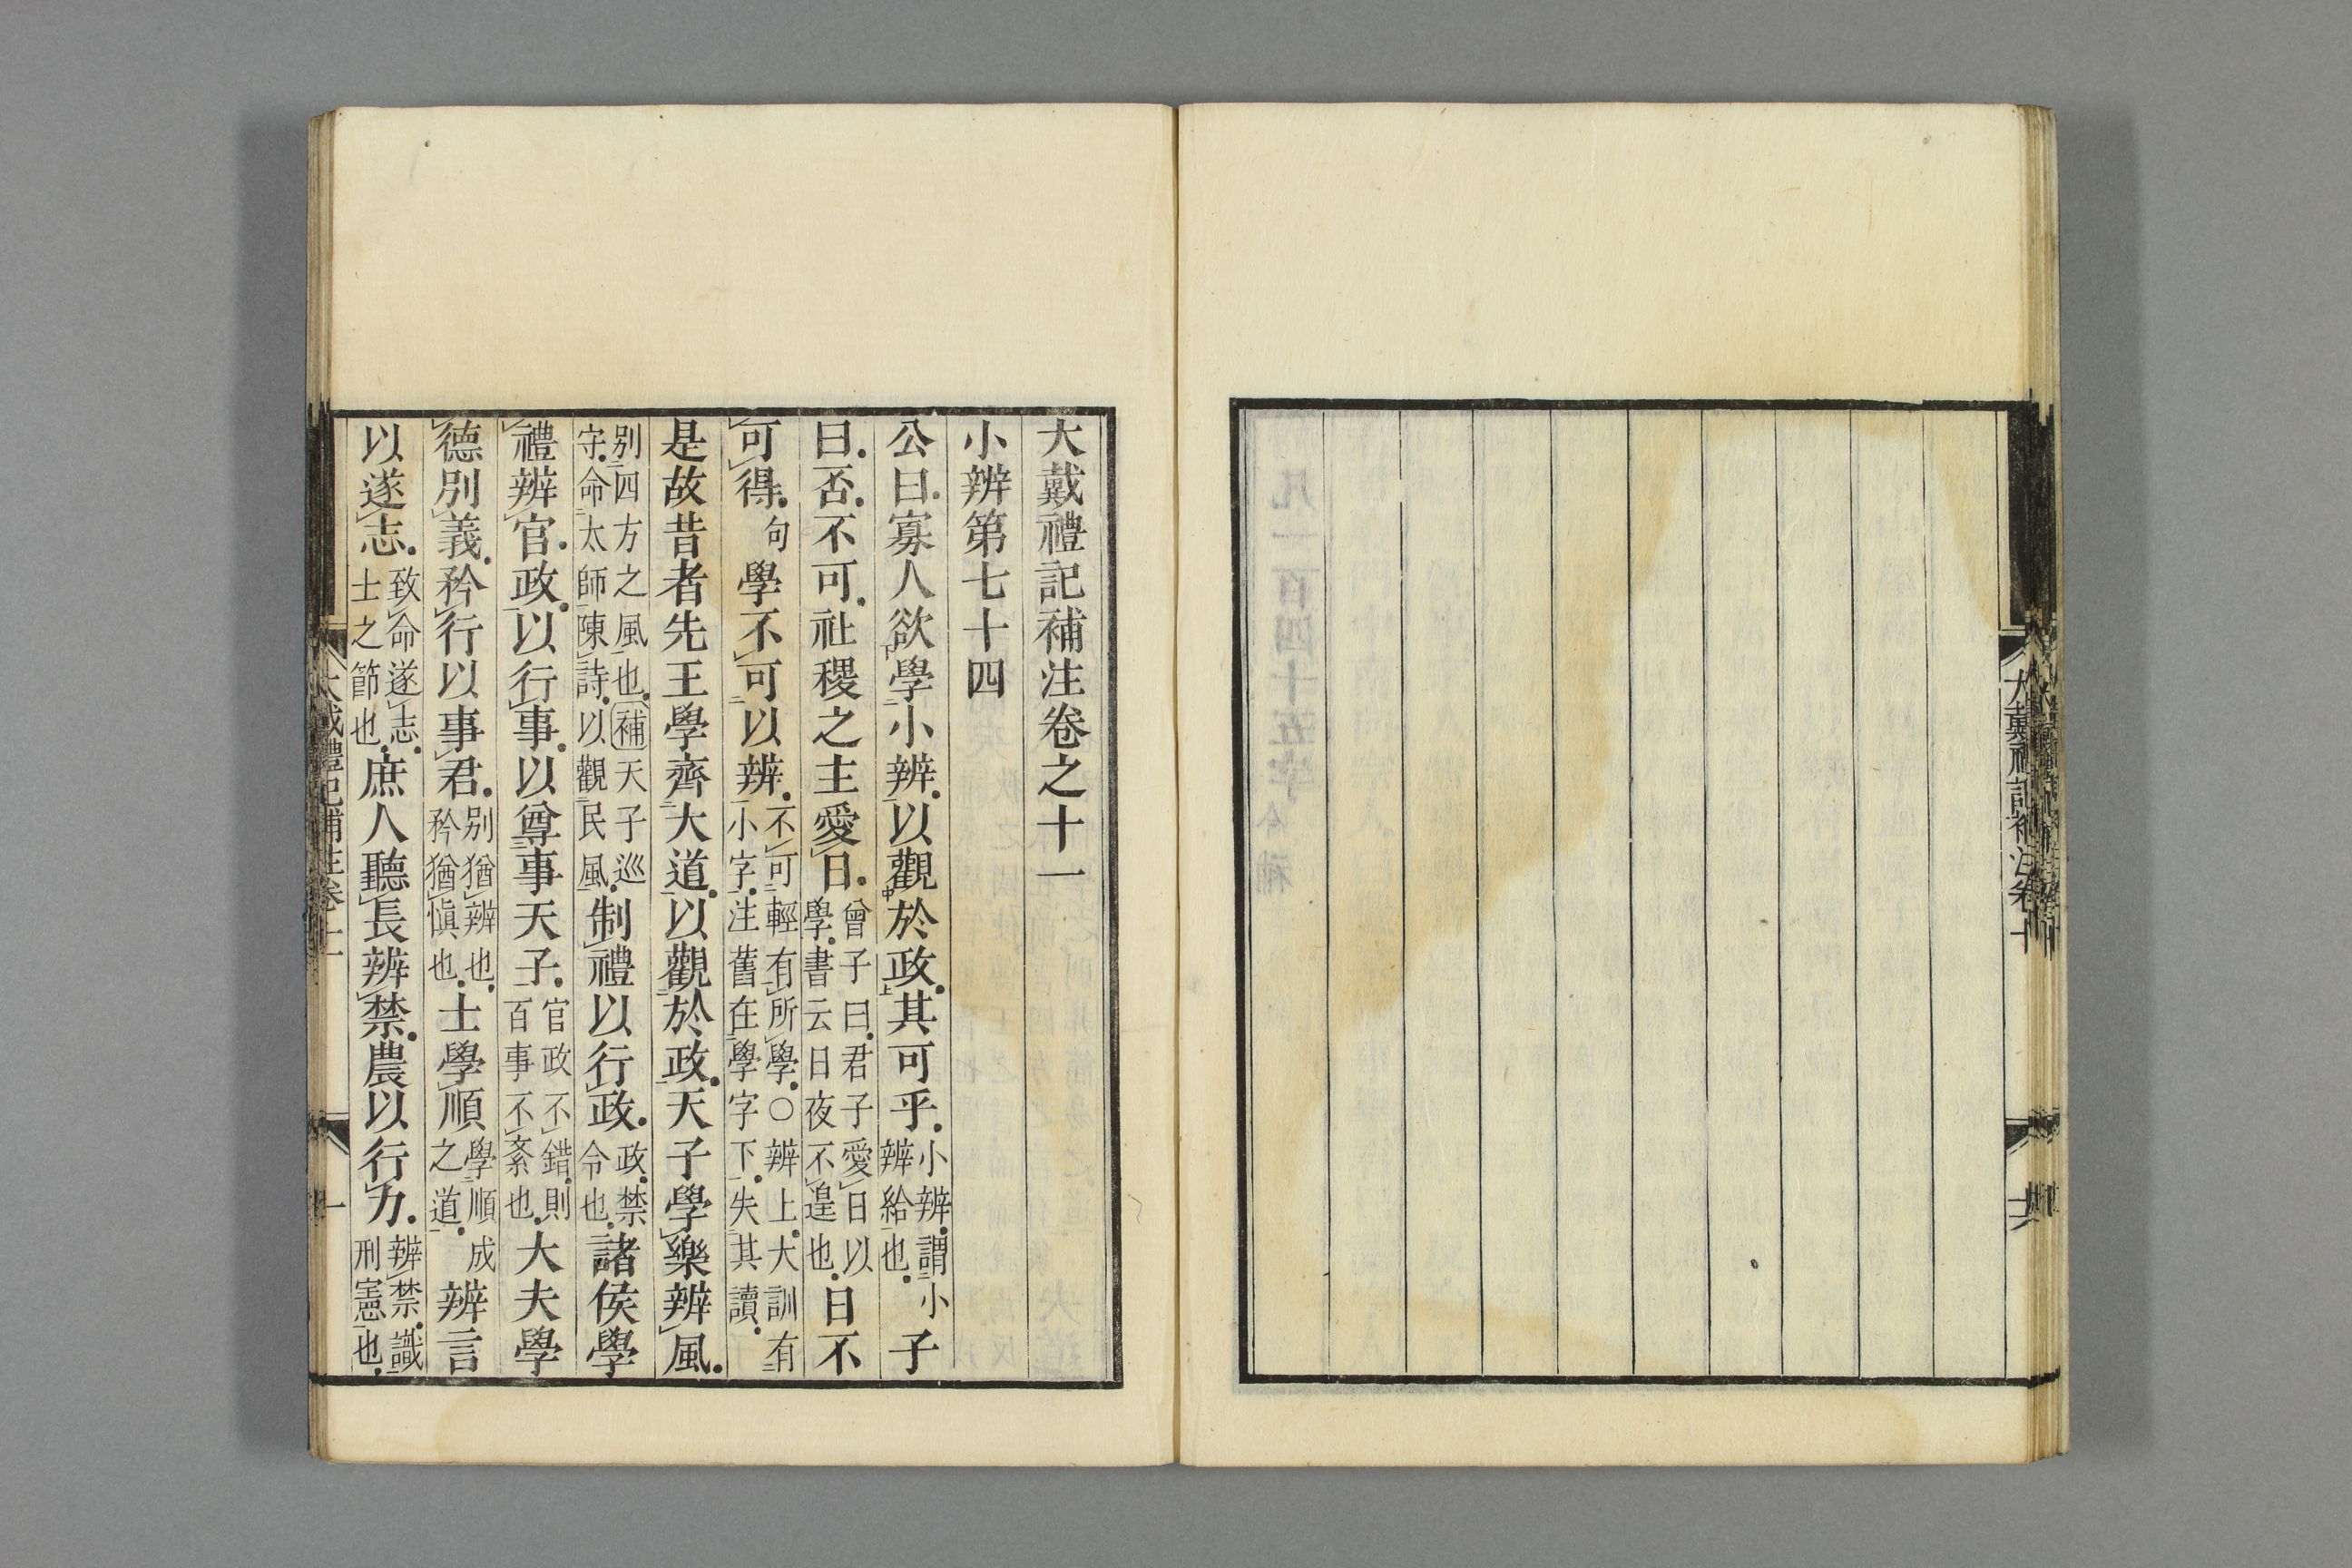 大戴禮記補注卷十
大戴禮記補注卷之十一
小辨第七十四
公曰寡人欲學小辨以觀於政其可乎小辨謂小辨給也子
曰否不可社稷之主愛日曾子曰君子愛日以學書云日夜不遑也日不
可得句學不可以辨不可輕有所學○辨上大訓有小字注舊在學字下失其讀
是故昔者先王學齊大道以觀於政天子學樂辨風
别四方之風也補天子巡守命太師陳詩以觀民風制禮以行政政禁令也諸侯學
禮辨官政以行事以尊事天子官政不錯則百事不紊也大夫學
德別義矜行以事君别猶辨也矜猶愼也士學順學順成之道辨言
以遂志致命遂志士之節也庶人聽長辨禁農以行力辨禁識刑憲也
大戴禮記補注卷十一
一